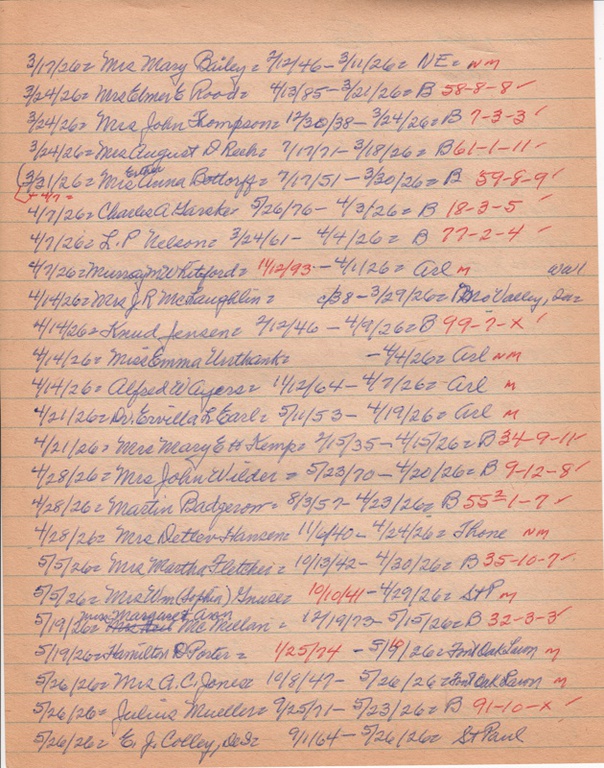 3/17/26= Mrs Mary Bailey = 2/12/46 - 3/11/26= NE= NM
3/24/26= Mrs Elmer E Rood= 4/13/85 - 3/21/26= B 58-8-8 ✓
3/24/26= Mrs John Thompson= 12/30/38 - 3/24/26= B 7-3-3 ✓
3/24/26= Mrs August D = 7/17/71 - 3/18/26= B 61-1-11 ✓
Esther
(3/31/26= Mrs Anna Bottorff= 7/17/51 - 3/30/26= B 59-8-9 ✓
+ 4/7=
4/7/26= Charles A Garske= 5/26/76 - 4/3/26= B 18-3-5 ✓
4/7/26= L. P Nelson= 3/24/61 - 4/4/26= B 77-2-4 ✓
4/7/26= Murray M Whitford= 11/12/93 - 4/1/26= Arl M WW1
4/14/26= Mrs J. R McLaughlin= c/38 - 3/29/26= Mo Valley, Ia=
4/14/26= Knud Jensen= 2/12/46 - 4/9/26= B 99-7-X ✓
4/14/26= Miss Emma Unthank= - 4/4/26= Arl NM
4/14/26= Alfred W Ayers= 11/12/64 - 4/7/26= Arl M
4/21/26= Dr. Ervilla L Earl= 5/11/53 - 4/19/26= Arl M
4/21/26= Mrs Mary E H Kemp= 2/15/35 - 4/15/26= B 34-9-11 ✓
4/28/26= Mrs John Wilder= 5/23/70 - 4/20/26= B 9-12-8 ✓
4/28/26= Martin Badgerow= 8/3/57 - 4/23/26= B 55²-1-7 ✓
4/28/26= Mrs Detlev Hansen= 11/6/40 - 4/24/26= Thone NM
5/5/26= Mrs Martha Fletcher= 10/13/42 - 4/30/26= B 35-10-7 ✓
5/5/26= Mrs Wm (Sophia) = 10/10/41 - 4/29/26= StP M
Miss Margaret Avon
5/19/26= McMillan= 12/19/73 - 5/15/26= B 32-3-3 ✓
5/19/26= Hamilton D Porter= 1/25/74 - 26= Font Oak Lawn M
5/26/26= Mrs A. C. Jones 10/8/47 - 5/26/26= Font Oak Lawn M
5/26/26= Julius Mueller= 9/25/71 - 5/23/26= B 91-10-X ✓
5/26/26= E. J. Colley, 9/1/64 - 5/26/26= St Paul